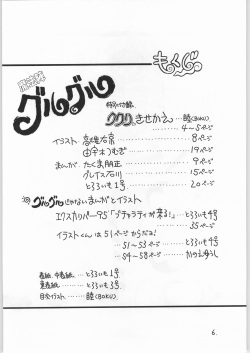 もくじ
魔法陣
グルグル
特別付録
ククリ きせかえ … 睦(BOKU)
4~5ページ
イラスト 高雄右京 … 8ページ
由宇木つむぎ … 19ページ
まんが たくま朋正 … 9ページ
グレイス石川 … 15ページ
とろろいも1号 … 20ページ
グルグルじゃないまんがとイラスト
エクスカリパー95「ブチャラティが来る!」…とろろいも4号
35ページ
イラストくんは51ページからだよ!
51~53ページ … とろろいも4号
54~58ページ …
表紙、中表紙 … とろろいも1号
裏表紙 … とろろいも3号
目次イラスト … 睦(BOKU)
6.